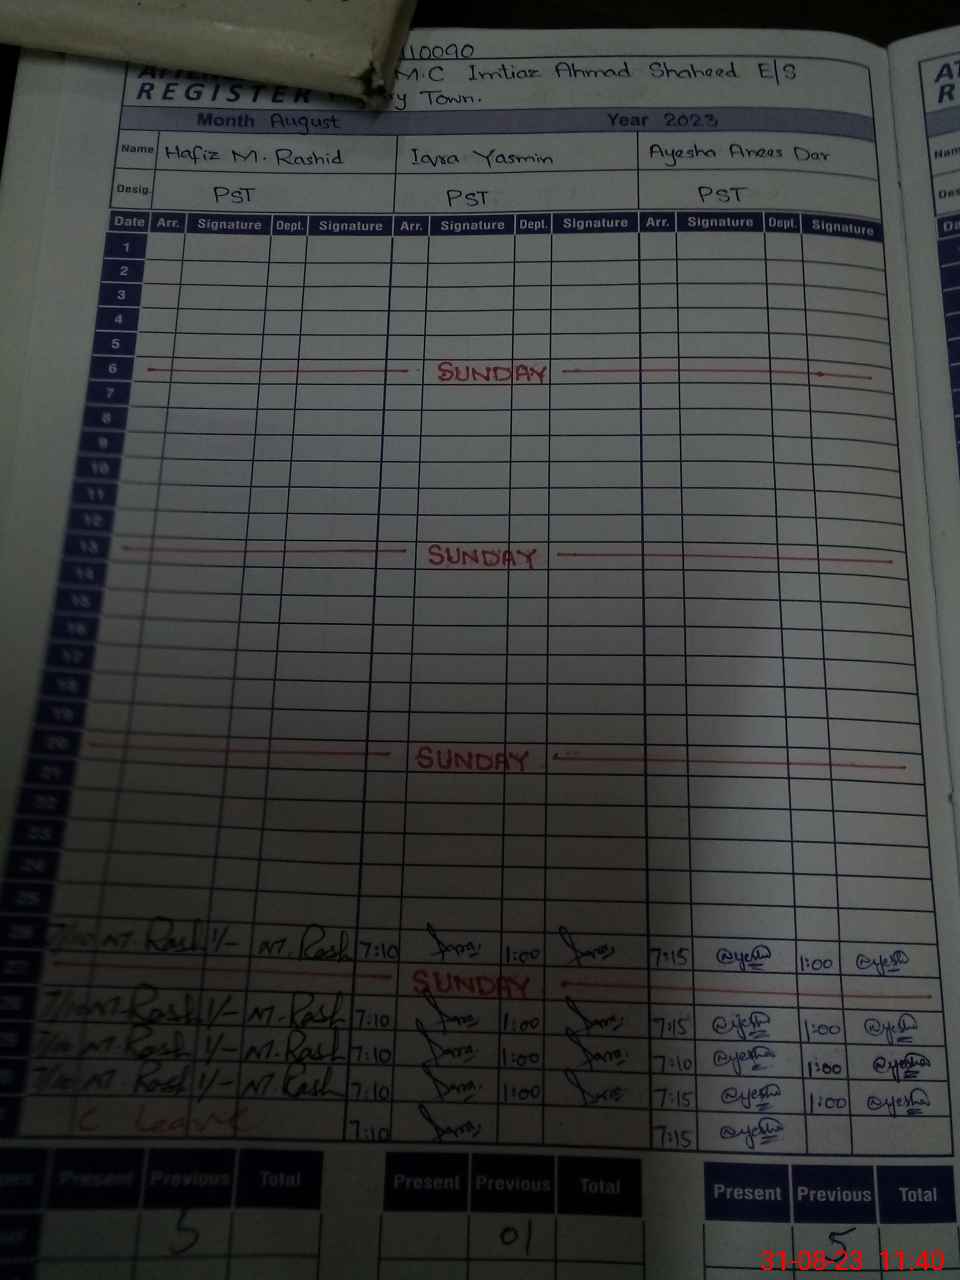 110090
M.C Imtiaz Ahmad Shaheed E/S
REGISTER y Town.
Month August Year 2023
Name Hafiz M. Rashid Iqra Yasmin Ayesha Anees Dar
Desig. PST PST PST
Date Arr. Signature Dept. Signature Arr. Signature Dept. Signature Arr. Signature Dept. Signature
1
2
3
4
5
6 SUNDAY
7
8
9
10
11
12
13 SUNDAY
14
15
16
17
18
19
20 SUNDAY
21
22
23
24
25
26 7/10 M. Rash 1/- M. Rash 7:10 1:00 7:15 @yesha 1:00 @yesha
27 SUNDAY
7/10 M. Rash 1/- M. Rash 7:10 1:00 7:15 @yesha 1:00 @yesha
7/10 M. Rash 1/- M. Rash 7:10 1:00 7:10 @yesha 1:00 @yesha
7/10 M. Rash 1/- M. Rash 7:10 1:00 7:15 @yesha 1:00 @yesha
C Leave 7:10 7:15 @yesha
Present Previous Total Present Previous Total Present Previous Total
5 01 5
31-08-23 11:40